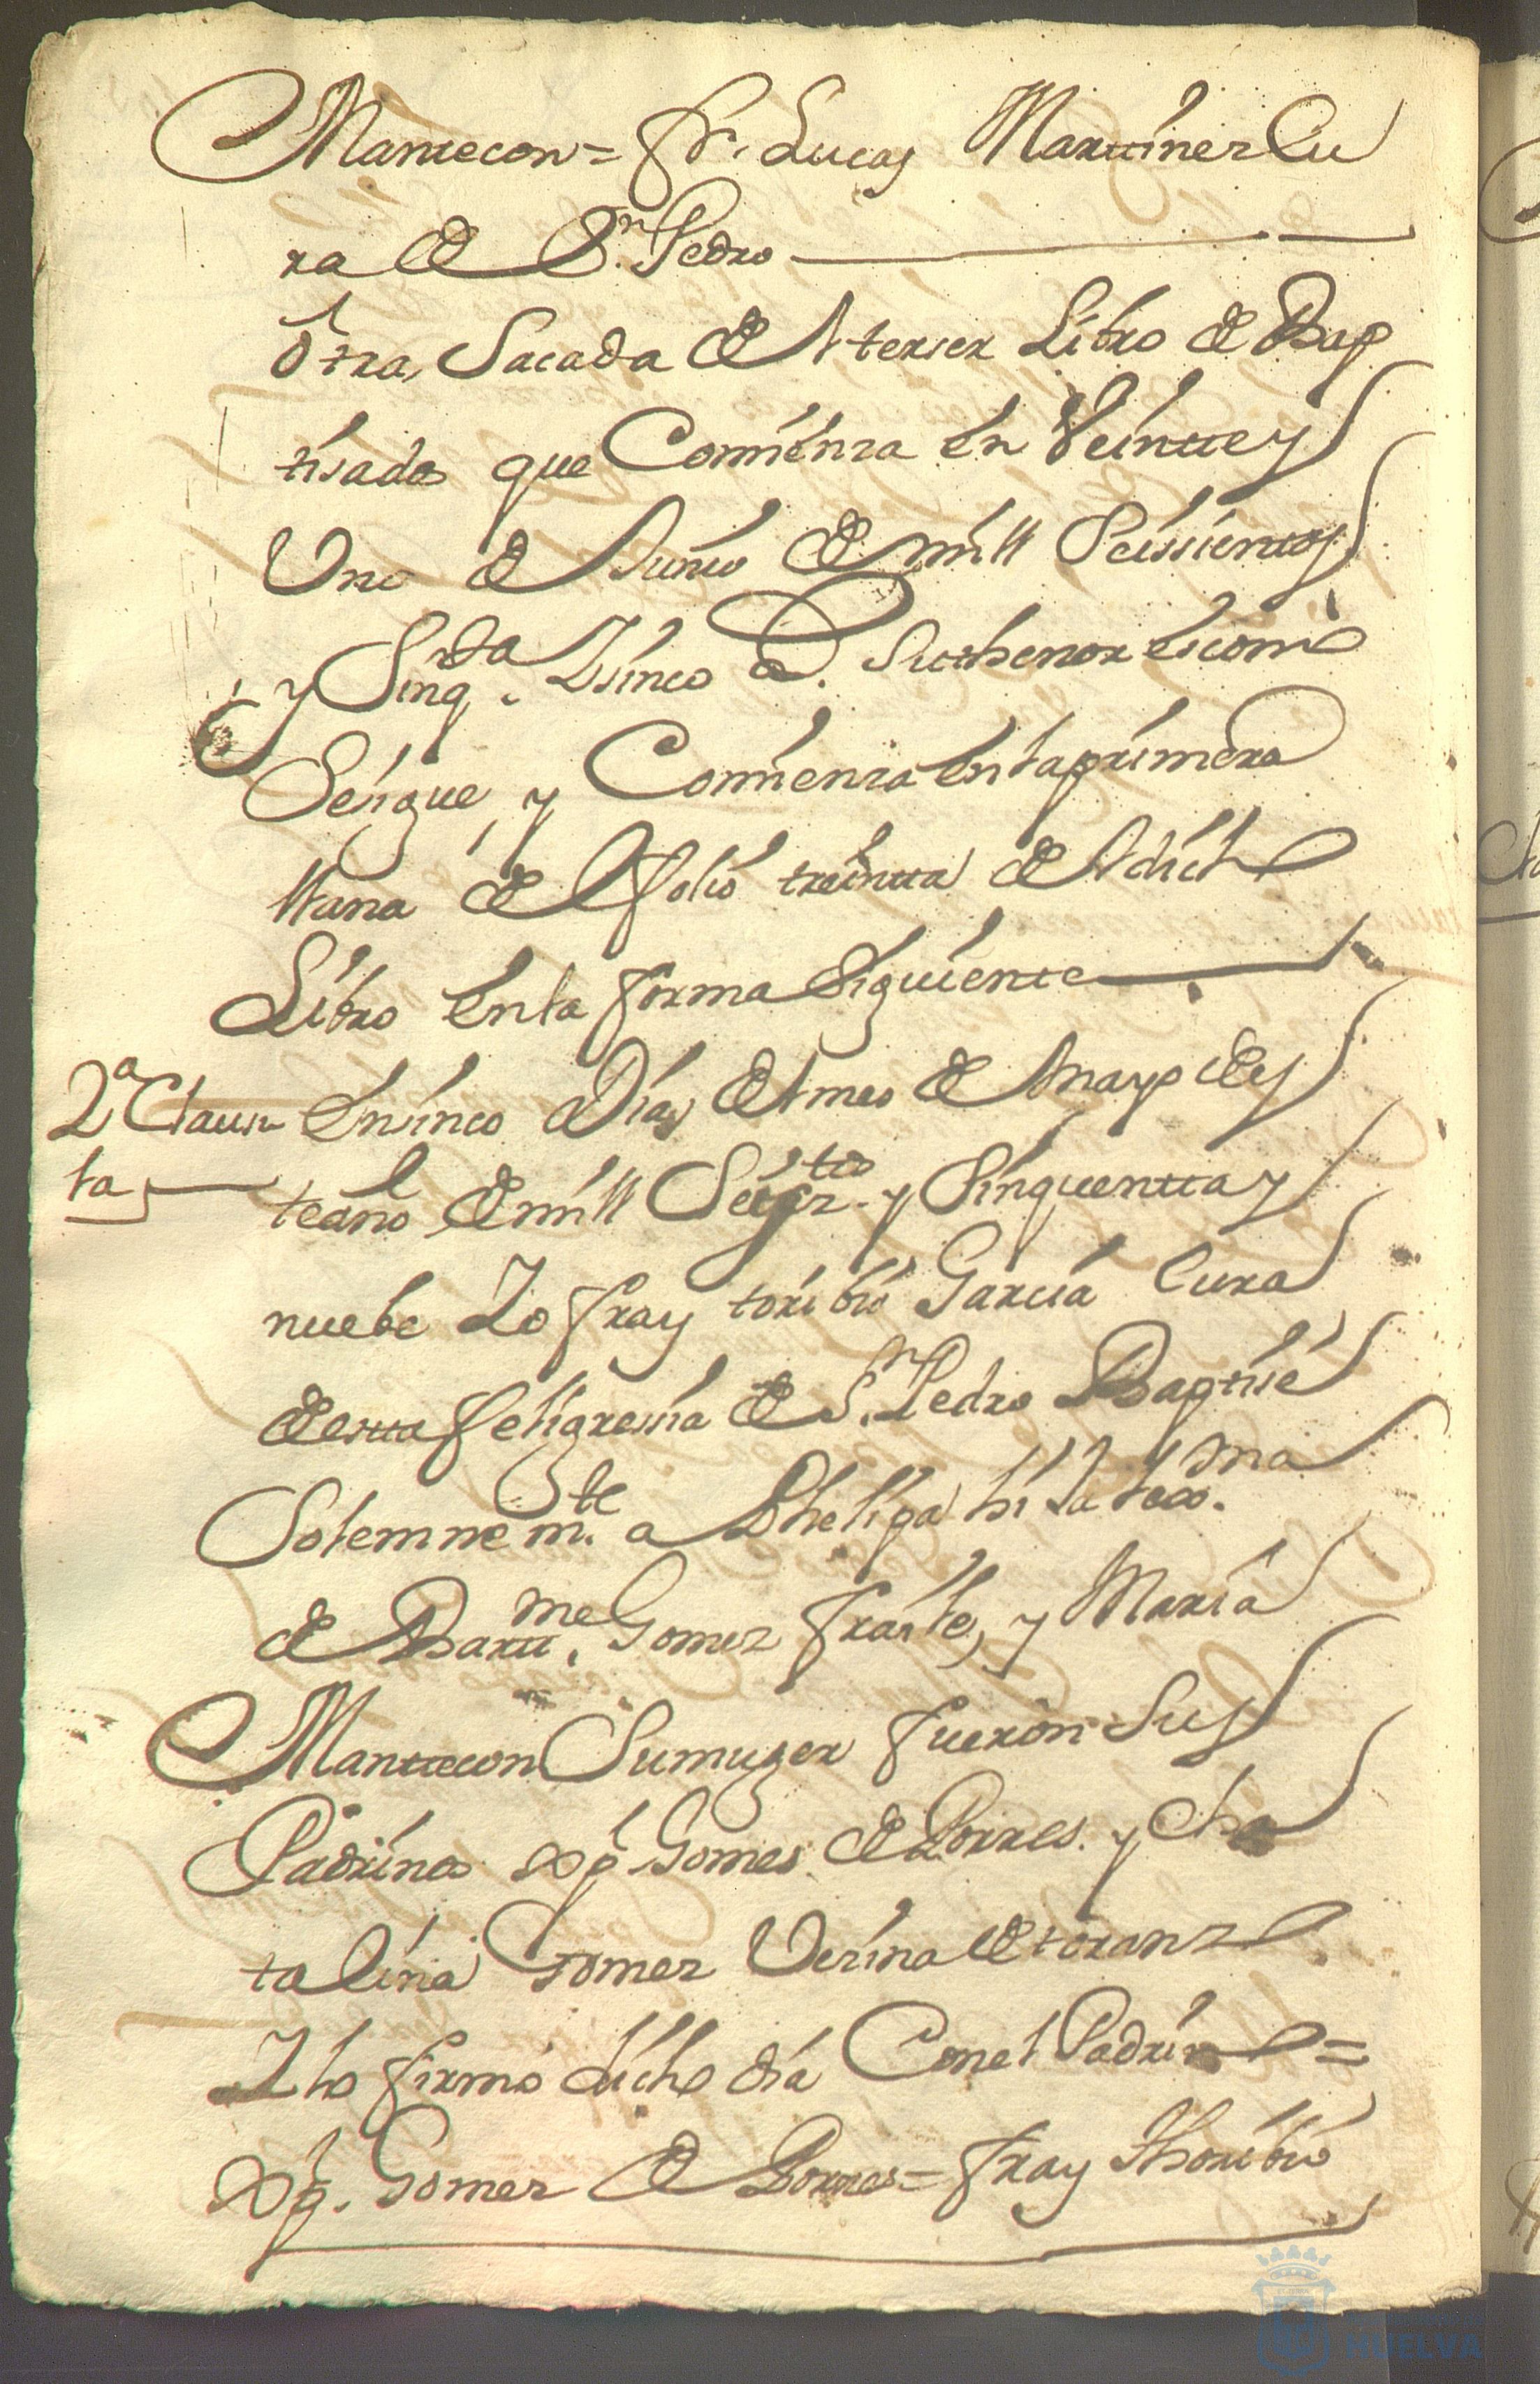 Mantecon = fr. Lucas Martinez Cu
ra de S.n Pedro
Otra, Sacada del terser Libro de Bap
tisados que Comiensa en Veinte y
Uno de Junio de mill Seissientos
y Sinq.ta y sinco a. Suthenor es como
Sesigue, y Comiensa en la primera
llana del folio treinta del dicho
Libro en la forma Siguiente
2a Clausu
la
En sinco Dias del mes de Mayo de es
te año de mill Seisz.tos y Sinquenta y
nuebe Yo fray toribio Garcia Cura
de esta feligresia de S.n Pedro Baptise
Solemnem.te a Phelipa hija lex.ma
de Bartt.me Gomez fraile, y Maria
Mantecon Sumuger fueron Sus
Padrinos Xp.l Gomes de Porres y Cha
talina Gomez Vezina de toranzo
Y lo firmo dicho dia Con el Padrino =
Xp.l Gomez de Porres = fray Thoribio
HUELVA